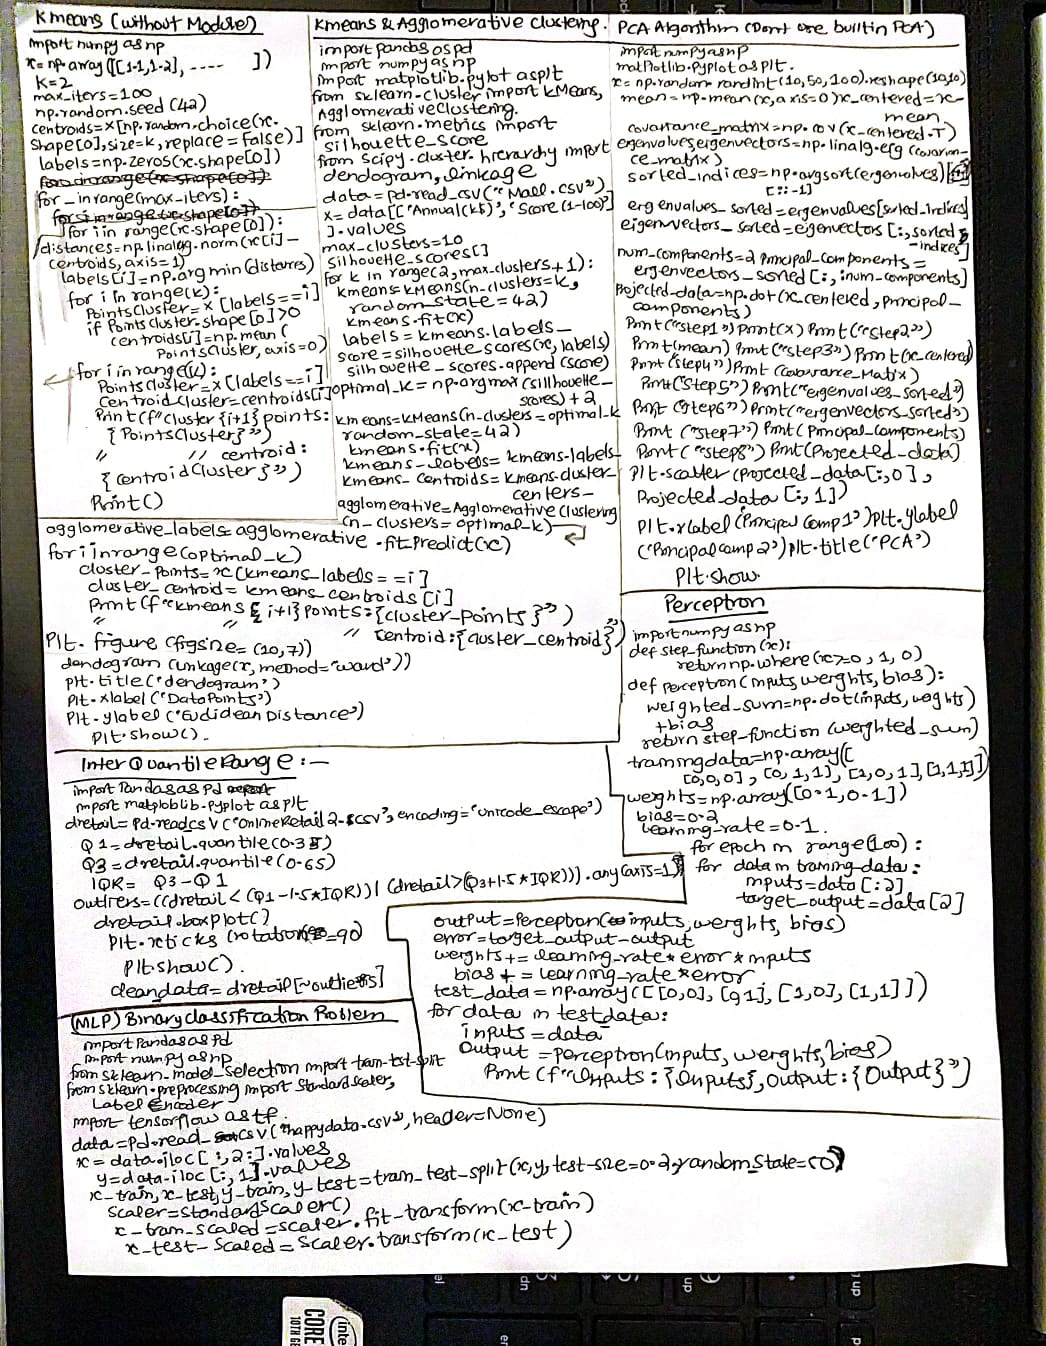 Kmeans (without Module)
import numpy as np
x= np.array([[1-1,1-2], ---- ])
K=2
max_iters=100
np.random.seed (42)
centroids=x[np.random.choice(x.
shape[0],size=k,replace=false)]
labels=np.zeros(x.shape[0])
for_ inrange(max_iters):
for i in range(x.shape[0]):
distances=np.linalg.norm(x[i]-
centroids, axis=1)
labels[i]=np.argmin(distances)
for i in range(k):
PointsCluster=x [labels==i]
if PointsCluster.shape[0]>0
centroids[i]=np.mean(
PointsCluster, axis=0)
for i in range(k):
PointsCluster=x[labels==i]
CentroidCluster=centroids[i]
Print(f"cluster {i+1} points:
{PointsCluster}")
" " centroid:
{centroidCluster}")
Print()
Kmeans & Agglomerative clustering.
import pandas as pd
import numpy as np
import matplotlib.pylot as plt
from sklearn.cluster import KMeans,
AgglomerativeClustering.
from sklearn.metrics import
silhouette_score
from scipy.cluster.hierarchy import
dendogram, linkage
data=pd.read_csv("Mall.csv")
x=data[['Annual(k$)','Score(1-100)']
].values
max_clusters=10
silhouette_scores[]
for k in range(2,max_clusters+1):
kmeans=kMeans(n_clusters=k,
random_state=42)
kmeans.fit(x)
labels=kmeans.labels_
score=silhouette_scores(x,labels)
silhouette_scores.append(score)
optimal_k=np.argmax(silhouette_
scores)+2
kmeans=kMeans(n-clusters=optimal_k
random_state=42)
kmeans.fit(x)
kmeans_labels=kmeans-labels-
kmeans_centroids=kmeans.cluster_
centers_
agglomerative=Agglomerative Clustering
(n_clusters=optimal_k)
agglomerative_labels=agglomerative.fitPredict(x)
for i inrange(optimal_k)
cluster_Points=x[kmeans_labels==i]
cluster_centroid=kmeans_centroids[i]
Print(f"kmeans {i+1}points:{cluster_points}")
" " " centroid:{cluster_centroid}")
Plt.figure(figsize=(10,7))
dendogram(linkage(x,method="ward"))
plt.title('dendogram')
Plt.xlabel('DataPoints')
Plt.ylabel('Euclidean Distance')
Plt.show().
PCA Algorithm (Dont use builtin PCA)
import numpy as np
matplotlib.pyplot as plt.
x=np.random.randint(10,50,100).reshape(10,10)
mean=np.mean(x,axis=0)x_centered=x-
mean
covariance_matrix=np.cov(x_centered.T)
eigenvalues,eigenvectors=np.linalg.eig(covarian-
ce_matrix)
sorted_indices=np.argsort(eigenvalues)
[::-1]
eigenvalues_sorted=eigenvalues[sorted_indices]
eigenvectors_sorted=eigenvectors[:,sorted
-indices]
num_components=2 Principal_Components=
eigenvectors_sorted[:,:num_components]
Projected_data=np.dot(x_centered,principal_
components)
Print("step1")print(x)Print("step2")
Print(mean)Print("step3")Print(x_centered)
Print("step4")Print(Covariance_Matrix)
Print("step5")Print("eigenvalues_sorted")
Print("step6")Print("eigenvectors_sorted")
Print("step7")Print(Principal_Components)
Print("step8")Print(Projected_data)
Plt.scatter(projected_data[:,0],
Projected_data[:,1])
Plt.xlabel(Principal Comp1')Plt.ylabel
('Principal comp2')plt.title('PCA')
Plt.show
Perceptron
import numpy as np
def step_function(x):
return np.where(x>=0,1,0)
def perceptron(inputs,weights,bias):
weighted_sum=np.dot(inputs,weights)
+bias
return step_function(weighted_sum)
trainingdata=np.array([
[0,0,0],[0,1,1],[1,0,1],[1,1,1]])
weights=np.array([0.1,0.1])
bias=0.2
learning-rate=0.1.
for epoch in range(100):
for data in training-data:
inputs=data[:2]
target_output=data[2]
output=Perceptron(inputs,weights,bias)
error=target_output-output
weights+=learning-rate*error*inputs
bias+=learning_rate*error
test_data=np.array([[0,0],[0,1],[1,0],[1,1]])
for data in testdata:
inputs=data
Output=perceptron(inputs,weights,bias)
Print(f"Inputs:{Inputs},output:{Output}")
Inter Quantile Range:-
import Pandas as Pd
import matploblib.Pyplot as plt
dretail=Pd.readcsv("OnlineRetail2.csv",encoding='unicode_escape')
Q1=dretail.quantile(0.35)
Q3=dretail.quantile(0.65)
IQR= Q3-Q1
outliers=((dretail<(Q1-1.5*IQR))|(dretail>(Q3+1.5*IQR))).any(axis=1)
dretail.boxplot()
Plt.xticks(rotation=90)
Plt.show().
cleandata=dretail[~outliers]
(MLP) Binaryclassification Problem
import Pandas as Pd
import numpy as np
from sklearn_model_selection import train-tst-split
from sklearn.preprocessing import Standardscaler,
Label Encoder
import tensorflow as tf.
data=Pd.read_csv("happydata.csv",header=None)
x=data.iloc[:,2:].values
y=data-iloc[:,1].values
x-train,x-test,y-train,y-test=train_test_split(x,y,test-size=0.2,random_state=50)
Scaler=StandardScaler()
x-train_scaled=scaler.fit-transform(x-train)
x-test-Scaled=Scaler.transform(x_test)
inte
CORE
10TH GE
dn
up
up